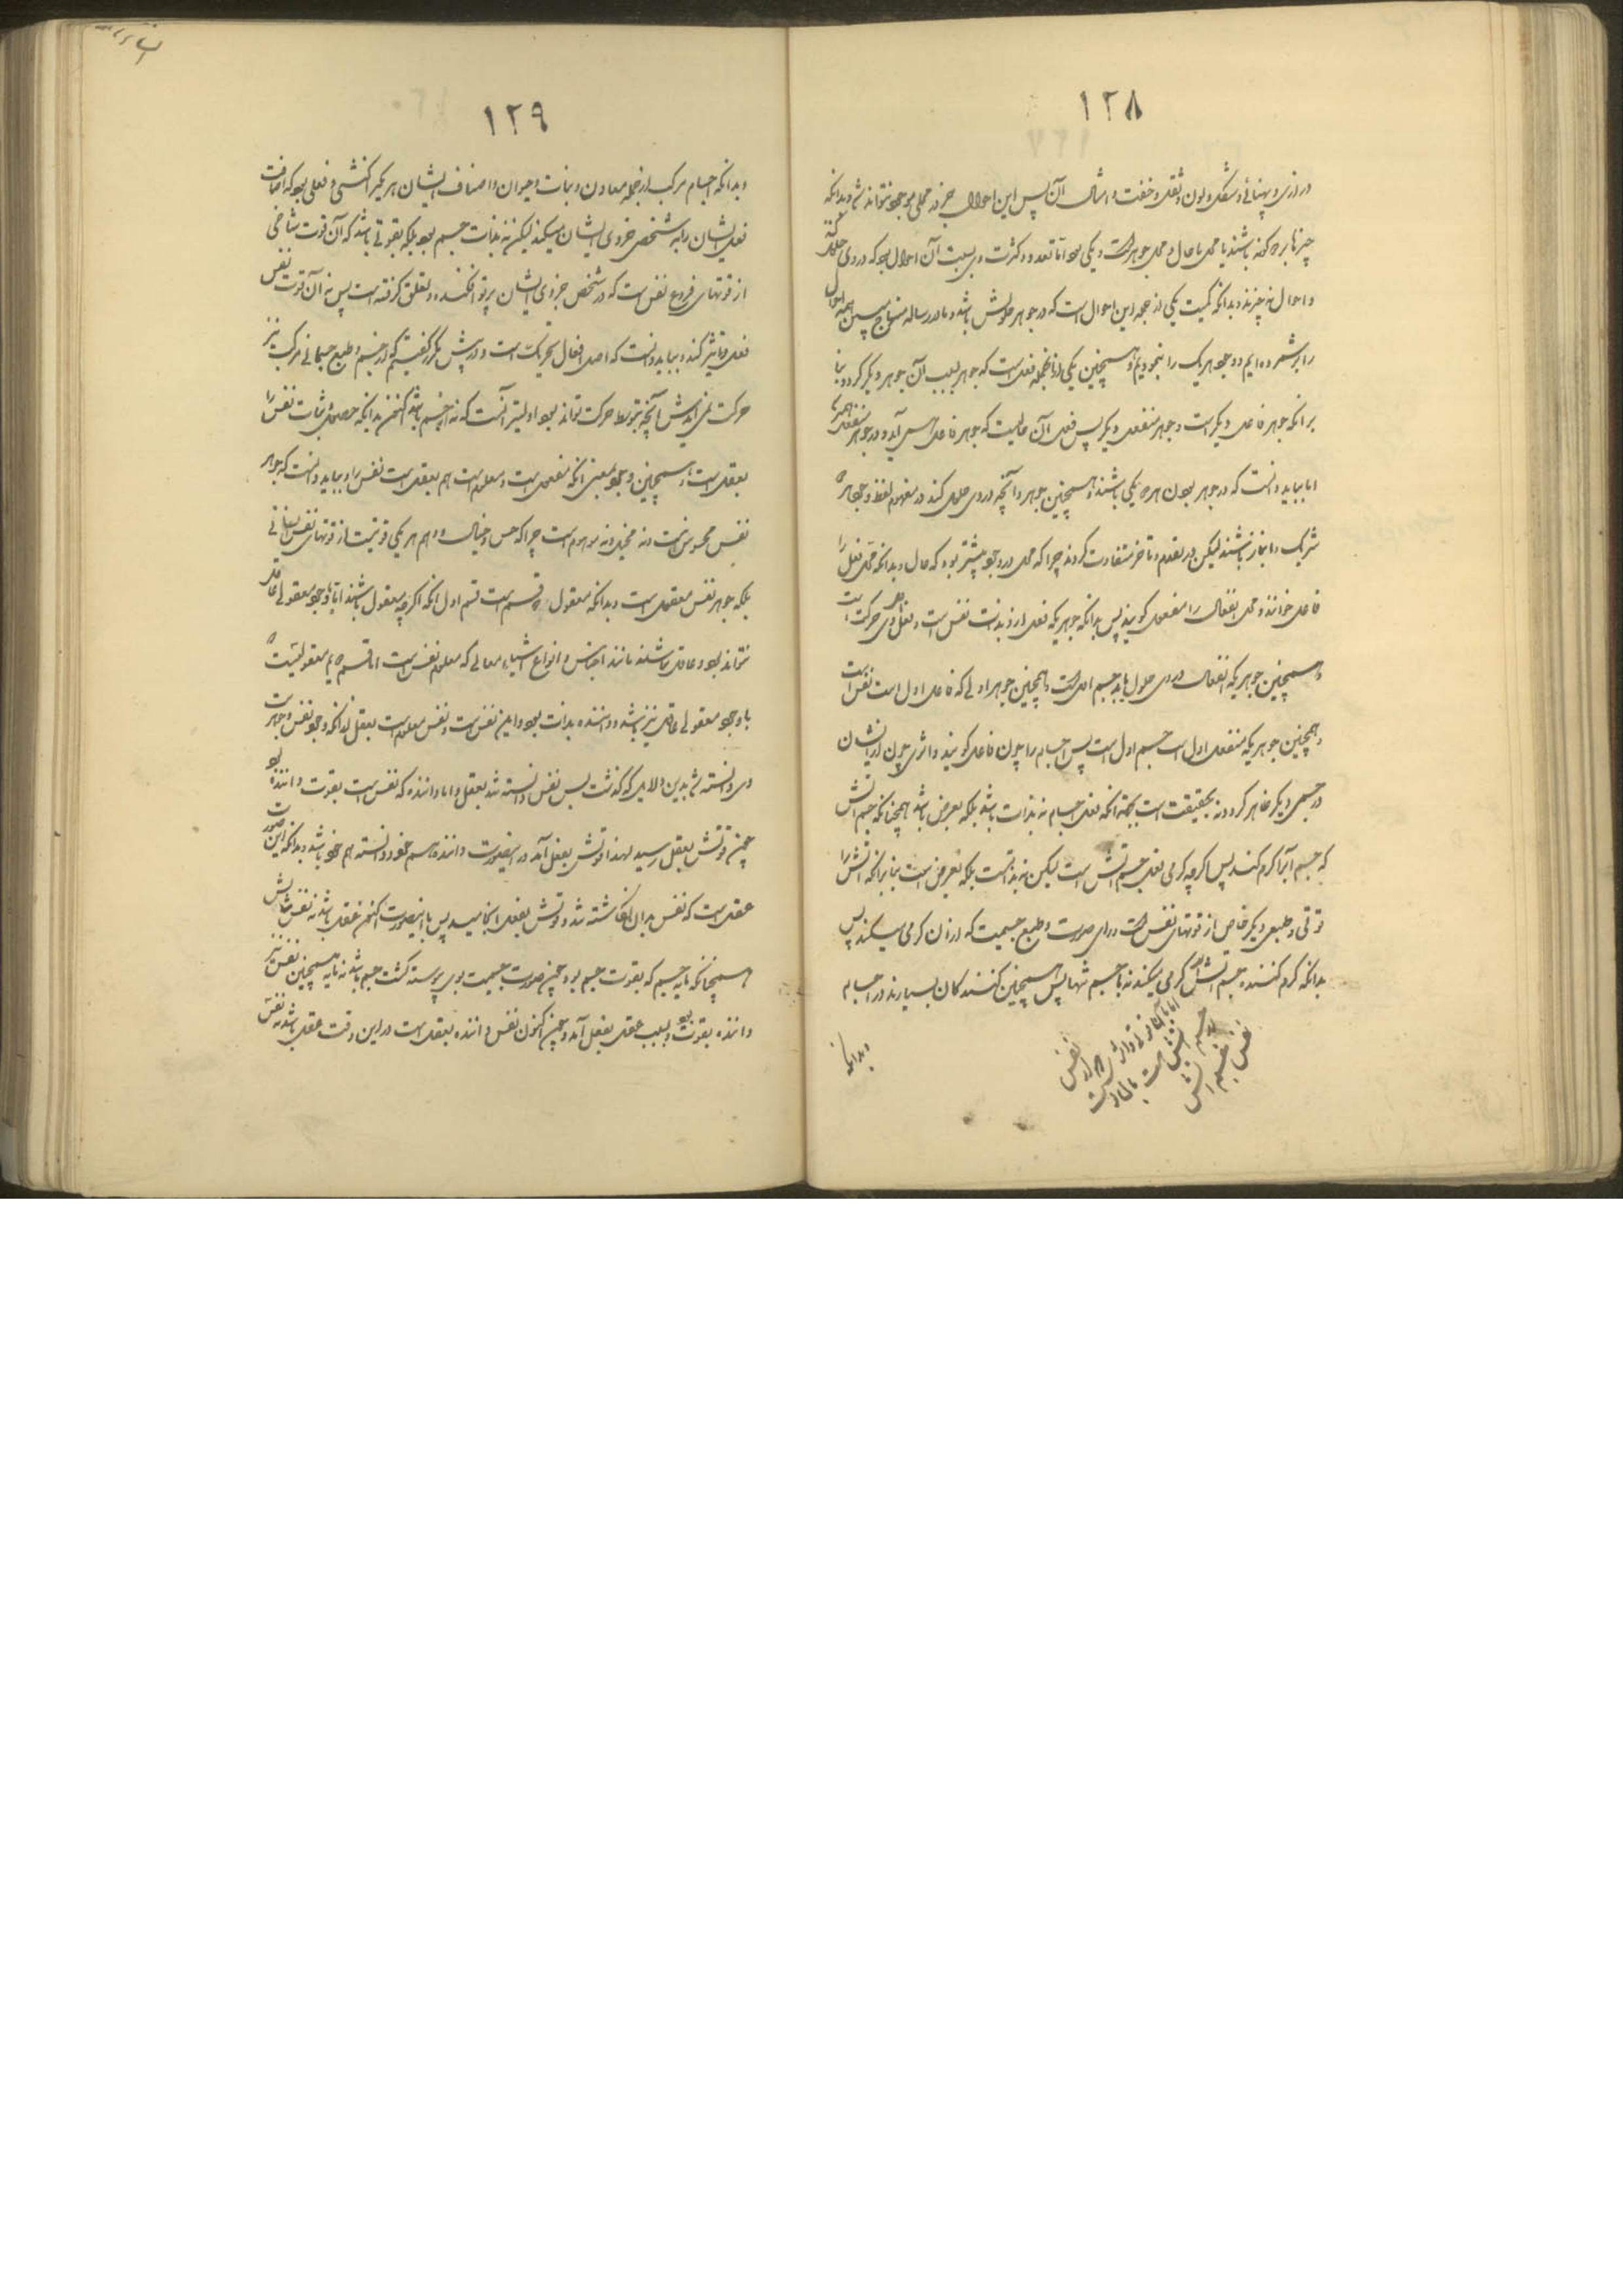 ۱۲۸
درازی و پهنائی و شکل و لون و ثقل و خفت و امثال آن پس این احوال جز در محلی موجود نتواند شد و بدانکه
چیزها بر دو گونه باشند یا محل یا حال و محل جوهر است و یکی بود اما تعدد و کثرت وی بسبب آن احوال بود که در وی حلول
و احوال چیزند و بدانکه کمیت یکی از جمله این احوال است که در جوهر حلولش باشد و ما در رساله منهاج مبین همه احوال
را بر شمرده‌ایم و وجود هر یک را بنمودیم و همچنین یکی از آنجمله فعل است که جوهر بسبب آن جوهر دیگر گردد بنا
برانکه جوهر فاعل دیگر است و جوهر منفعل دیگر پس فعل آن حالیست که جوهر فاعل آید و در جوهر منفعل
اما بباید دانست که در جوهر بودن هر دو یکی باشند و همچنین جوهر و آنچه در وی حلول کند در مفهوم لفظ وجود هر دو
شریک و انباز باشند لیکن در تقدم و تاخر متفاوت گردند چرا که محل در وجود پیشتر بود که حال و بدانکه محل فعل را
فاعل خوانند و محل انفعال را منفعل گویند پس بدانکه جوهریکه فعل از او بذات نفس است و فعل وی حرکت است
و همچنین جوهریکه انفعال در وی حلول یابد جسم است و همچنین جوهر اولی که فاعل اول است نفس است
و همچنین جوهریکه منفعل اول است جسم اول است پس اجسام را چون فاعل گویند و اثری چون از ایشان
در جسمی دیگر ظاهر گردد نه بحقیقت است بجهة آنکه فعل اجسام نه بذات باشد بلکه بعرض باشد همچنانکه جسم آتش
که جسم آب را گرم کند پس اگرچه گرمی بفعل جسم آتش است لیکن نه بذاتست بلکه بعرض است بنا برانکه آتش را
قوتی و طبعی دیگر خاص از قوتهای نفس است ورای صورت و طبع جسمیت که از آن گرمی میکند پس
بدانکه گرم کننده جسم آتش گرمی میکند نه با جسم تنها پس همچنین کنندگان بسیارند در اجسام
و بدانکه
۱۲۹
و بدانکه اجسام مرکب از جمله معادن و نبات و حیوان و اصناف ایشان هر یکی را کنشی و فعلی بود که اضافت
فعل ایشان را به شخص جزوی ایشان میکنند لیکن نه بذات جسم بود بلکه بقوتی باشد که آن قوت شاخی
از قوتهای فروع نفس است که در شخص جزوی ایشان پرتو افکنده و تعلق گرفته است پس نه آن قوت نفس
فعل و تاثیر کند و بباید دانست که اصل افعال تحریک است و در پیش مکرر گفتیم که از جسم و طبع جسمانی مرکب نیز
حرکت نمی‌آید پس آنچه بتوسط حرکت تواند بود اولیتر آنست که نه از جسم باشد اکنون بدانکه حصول و ثبات نفس را
بعقل است و همچنین وجود بمعنی آنکه مفعول است و معلوم است هم بعقل است نفس را و بباید دانست که جوهر
نفس محسوس نیست و نه مخیل و نه موهوم است چرا که حس و خیال و وهم هر یکی قوتیست از قوتهای نفس انسانی
بلکه جوهر نفس معقول است و بدانکه معقول دو قسم است قسم اول آنکه اگرچه معقول باشند اما با وجود معقولی عاقل
نتواند بود و عاقل نباشند مانند اجناس و انواع اشیاء و معانی که معلوم نفس است اما قسم دویم معقولیست که
با وجود معقولی عاقل نیز باشد و داننده بذات بود و این نفس است و نفس معلوم است بعقل بدانکه وجود نفس و جوهریت
وی دانسته شد بدین دلایل که گذشت پس نفس دانسته شد بعقل و اما داننده که نفس است بقوت داننده بود
چون قوتش بعقل رسید لهذا قوتش بفعل آمد در اینصورت داننده هم خود و دانسته هم خود باشد و بدانکه این صورت
عقل است که نفس بدان انگاشته شد و قوتش بفعل انجامید پس با اینصورت اکنون عقل باشد نه نفس
همچنانکه مایه جسم که بقوت جسم بود چون صورت جسمیت بوی پیوسته گشت جسم باشد نه مایه همچنین نفس نیز
داننده بقوت بود و بسبب عقل بفعل آمد و چون اکنون نفس داننده بعقل است در این وقت عقل باشد نه نفس